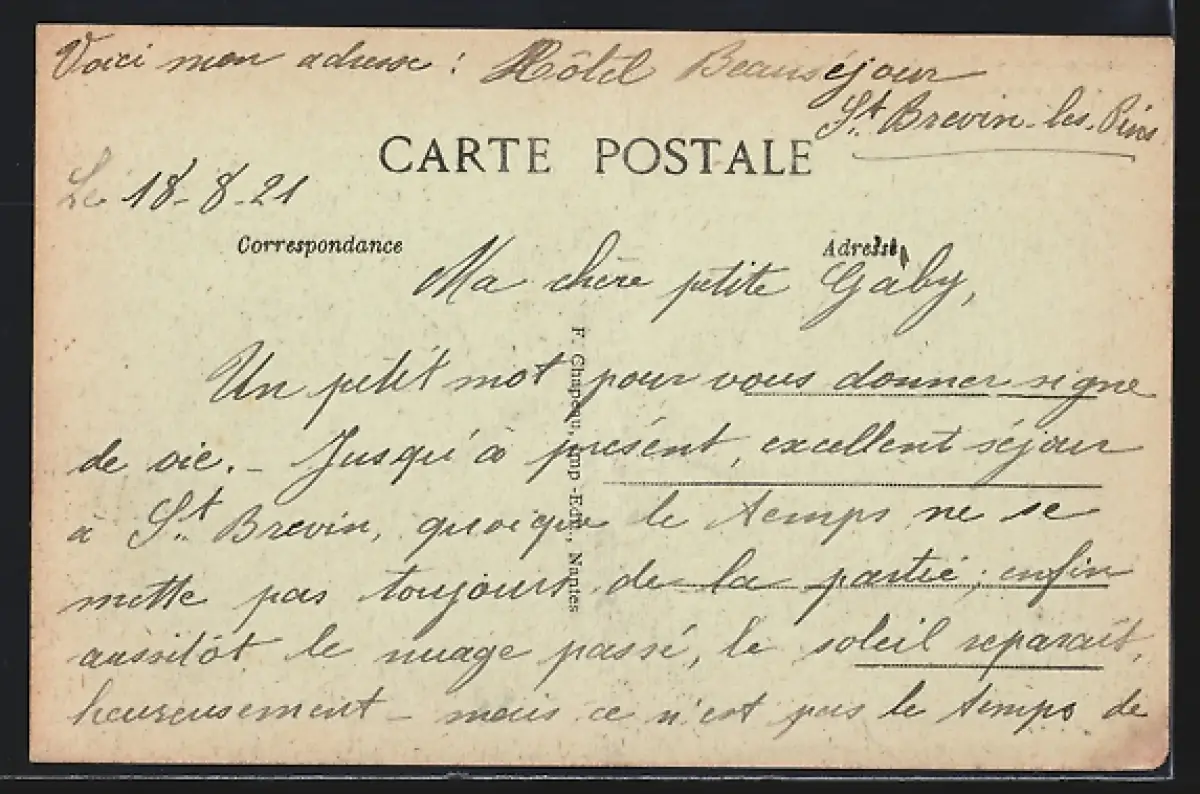 Voici mon adresse : Hôtel Beauséjour
St. Brevin-les-Pins
CARTE POSTALE
Le 18-8-21
Correspondance
Adresse
Ma chère petite Gaby,
F. Chapeau, Imp.-Edit., Nantes
Un petit mot pour vous donner signe
de vie. - Jusqu'à présent, excellent séjour
à St. Brevin, quoique le temps ne se
mette pas toujours de la partie; enfin
aussitôt le nuage passé, le soleil reparaît,
heureusement - mais ce n'est pas le temps de